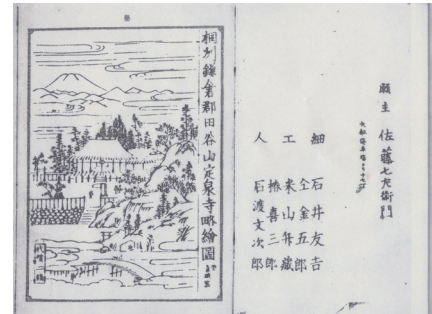 願主 佐藤七左衛門
細 石井友吉
仝金五郎
工 米山舛蔵
椿喜三郎
人 石渡文次郎
相刕鎌倉郡田谷山定泉寺略繪圖